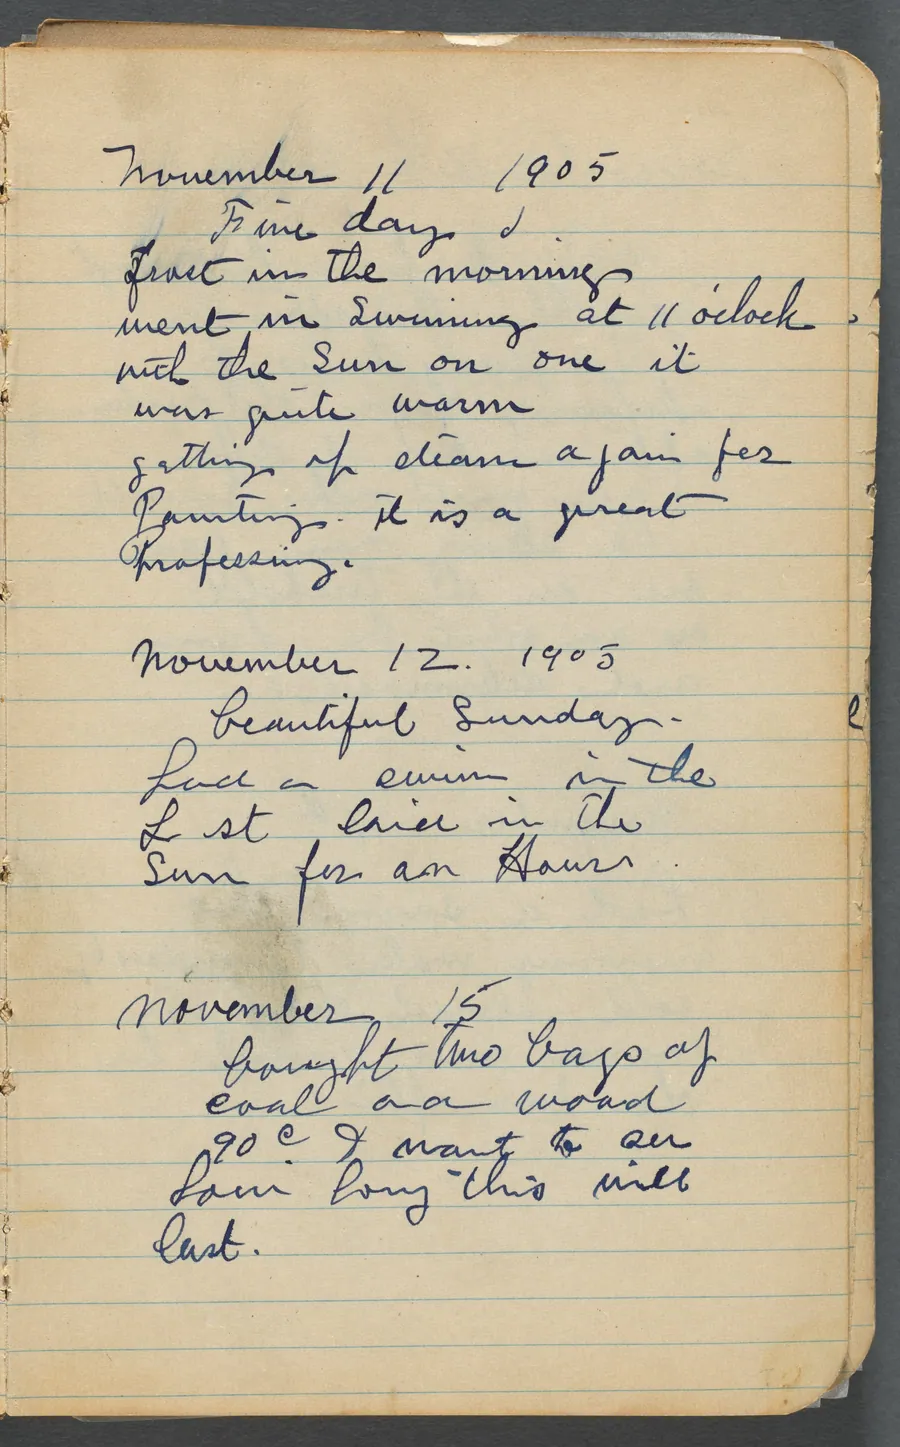 November 11 1905
Fine day
frost in the morning
went in Swiming at 11 o'clock
with the Sun on one it
was quite warm
getting up steam again for
Painting. it is a great
Professing.
November 12. 1905
beautiful Sunday.
had a swim in the
L st laid in the
Sun for an Hour.
November 15
bought two bags of
coal and wood
90 c I want to see
how long this will
last.